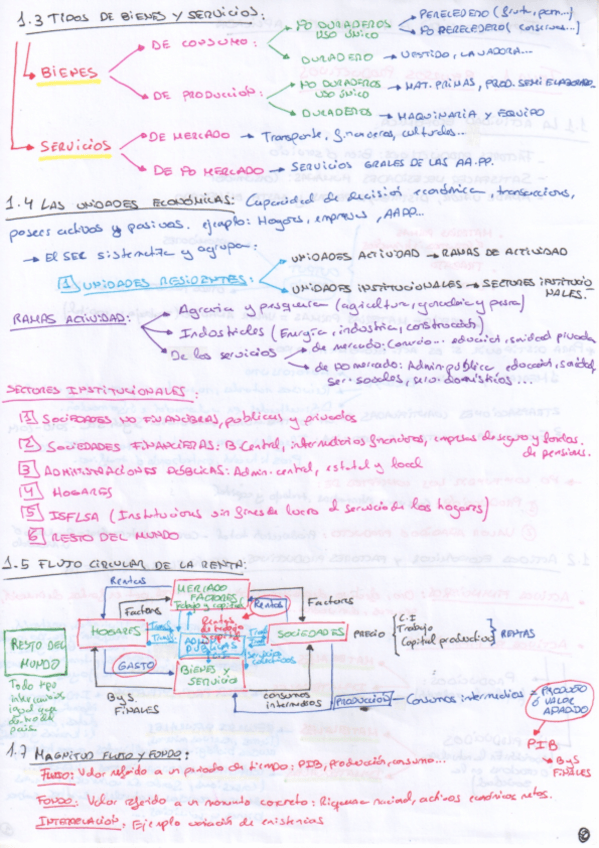 1.3 TIPOS DE BIENES Y SERVICIOS:
BIENES
DE CONSUMO:
NO DURADEROS USO ÚNICO
PERECEDERO (fruta, pan...)
NO PERECEDERO (conservas...)
DURADERO → VESTIDO, LAVADORA...
DE PRODUCCIÓN:
NO DURADEROS USO ÚNICO → MAT. PRIMAS, PROD. SEMIELABORADO..
DURADEROS → MAQUINARIA Y EQUIPO
SERVICIOS
DE MERCADO → Transporte, financieros, culturales...
DE NO MERCADO → SERVICIOS GRALES DE LAS AA.PP.
1.4 LAS UNIDADES ECONÓMICAS: Capacidad de decisión económica, transacciones,
poseer activos y pasivos. ejemplo: Hogares, empresas, AAPP...
→ El SEC sistematiza y agrupa:
1 UNIDADES RESIDENTES:
UNIDADES ACTIVIDAD → RAMAS DE ACTIVIDAD
UNIDADES INSTITUCIONALES → SECTORES INSTITUCIONALES.
RAMAS ACTIVIDAD:
Agraria y pesquera (agricultura, ganadería y pesca)
Industriales (Energía, industria, construcción)
De los servicios
de mercado: Comercio... educación, sanidad privada
de no mercado: Admin. pública, educación, sanidad,
ser. sociales, serv. domésticos...
SECTORES INSTITUCIONALES:
1 SOCIEDADES NO FINANCIERAS, públicas y privadas
2 SOCIEDADES FINANCIERAS: B. Central, intermediarios financieros, empresas de seguro y fondos de pensiones.
3 ADMINISTRACIONES PÚBLICAS: Admin. central, estatal y local
4 HOGARES
5 ISFLSH (Instituciones sin fines de lucro al servicio de los hogares)
6 RESTO DEL MUNDO
1.5 FLUJO CIRCULAR DE LA RENTA:
Rentas
MERCADO FACTORES
Trabajo y capital
Rentas
Factores
Factores
HOGARES
SOCIEDADES
BIENES Y SERVICIO
GASTO
ByS FINALES
consumos intermedios
RESTO DEL MUNDO
PRECIO
C.I
Trabajo
Capital productivo
RENTAS
PRODUCCIÓN
Consumos intermedios =
PRODUCTO ó VALOR AÑADIDO
PIB
ByS FINALES
1.7 MAGNITUD FLUJO Y FONDO:
FLUJO: Valor referido a un periodo de tiempo: PIB, producción, consumo...
FONDO: Valor referido a un momento concreto: Riqueza nacional, activos económicos netos.
INTERRELACIÓN: Ejemplo variación de existencias